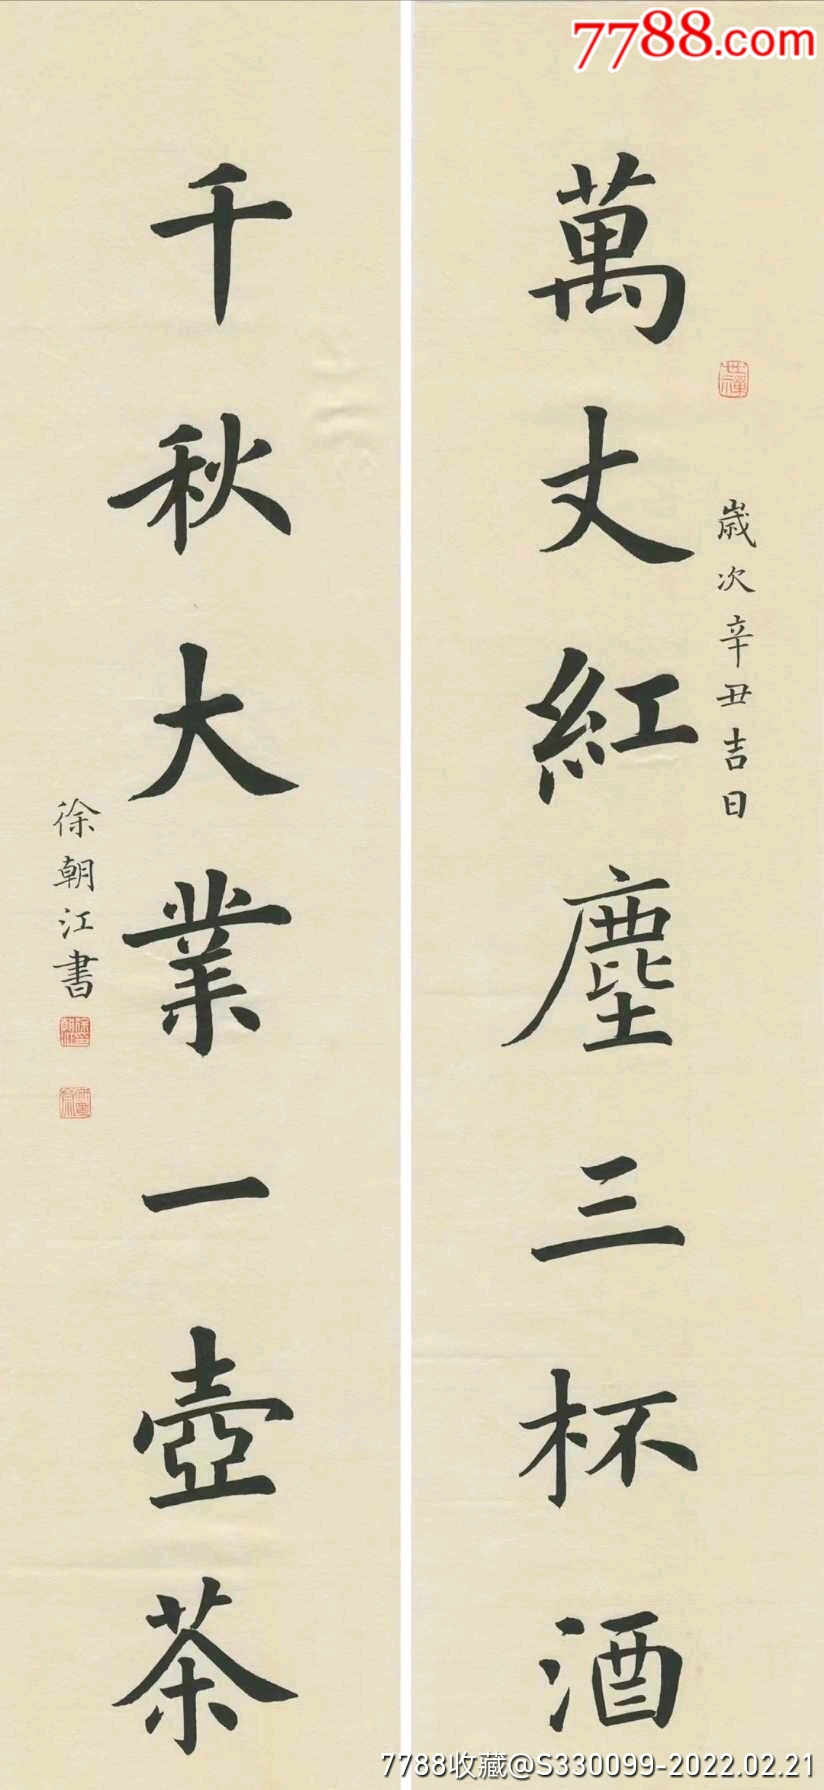 7788.com
萬丈紅塵三杯酒
歲次辛丑吉日
千秋大業一壺茶
徐朝江書
7788收藏@S330099-2022.02.21